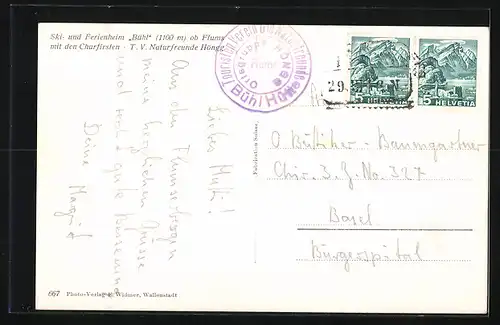 Ski- und Ferienheim „Bühl" (1100 m) ob Flums
mit den Churfirsten · T. V. Naturfreunde Höngg
Touristen Verein Die Naturfreunde
Ortsgruppe Höngg
Flums
Bühl Hütte
29.
5 HELVETIA
5 HELVETIA
Lieber Mutti!
Aus den Flumserbergen
meine herzlichen Grüsse
und recht gute Besserung
Deine
O. Bütiker - Baumgartner
Chir. 3. J. No. 327
Basel
Bürgerspital
667 Photo-Verlag E. Widmer, Wallenstadt